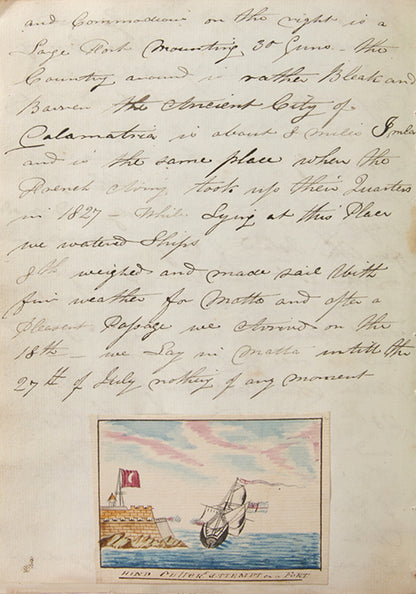 and Commodious on the right is a
Large Fort Mounting 30 Guns - the
Country around is rather Bleak and
Barren the Ancient City of
Calamatria is about 8 miles
and is the same place when the
French Army took up their Quarters
in 1827 - While Lying at this Place
we watered Ships
8th weighed and made sail With
fine weather for Malta and after a
Pleasent Passage we Arrived on the
18th - we Lay in Malta untill the
27th of July nothing of any moment
HIND ATTEMPT on a FORT